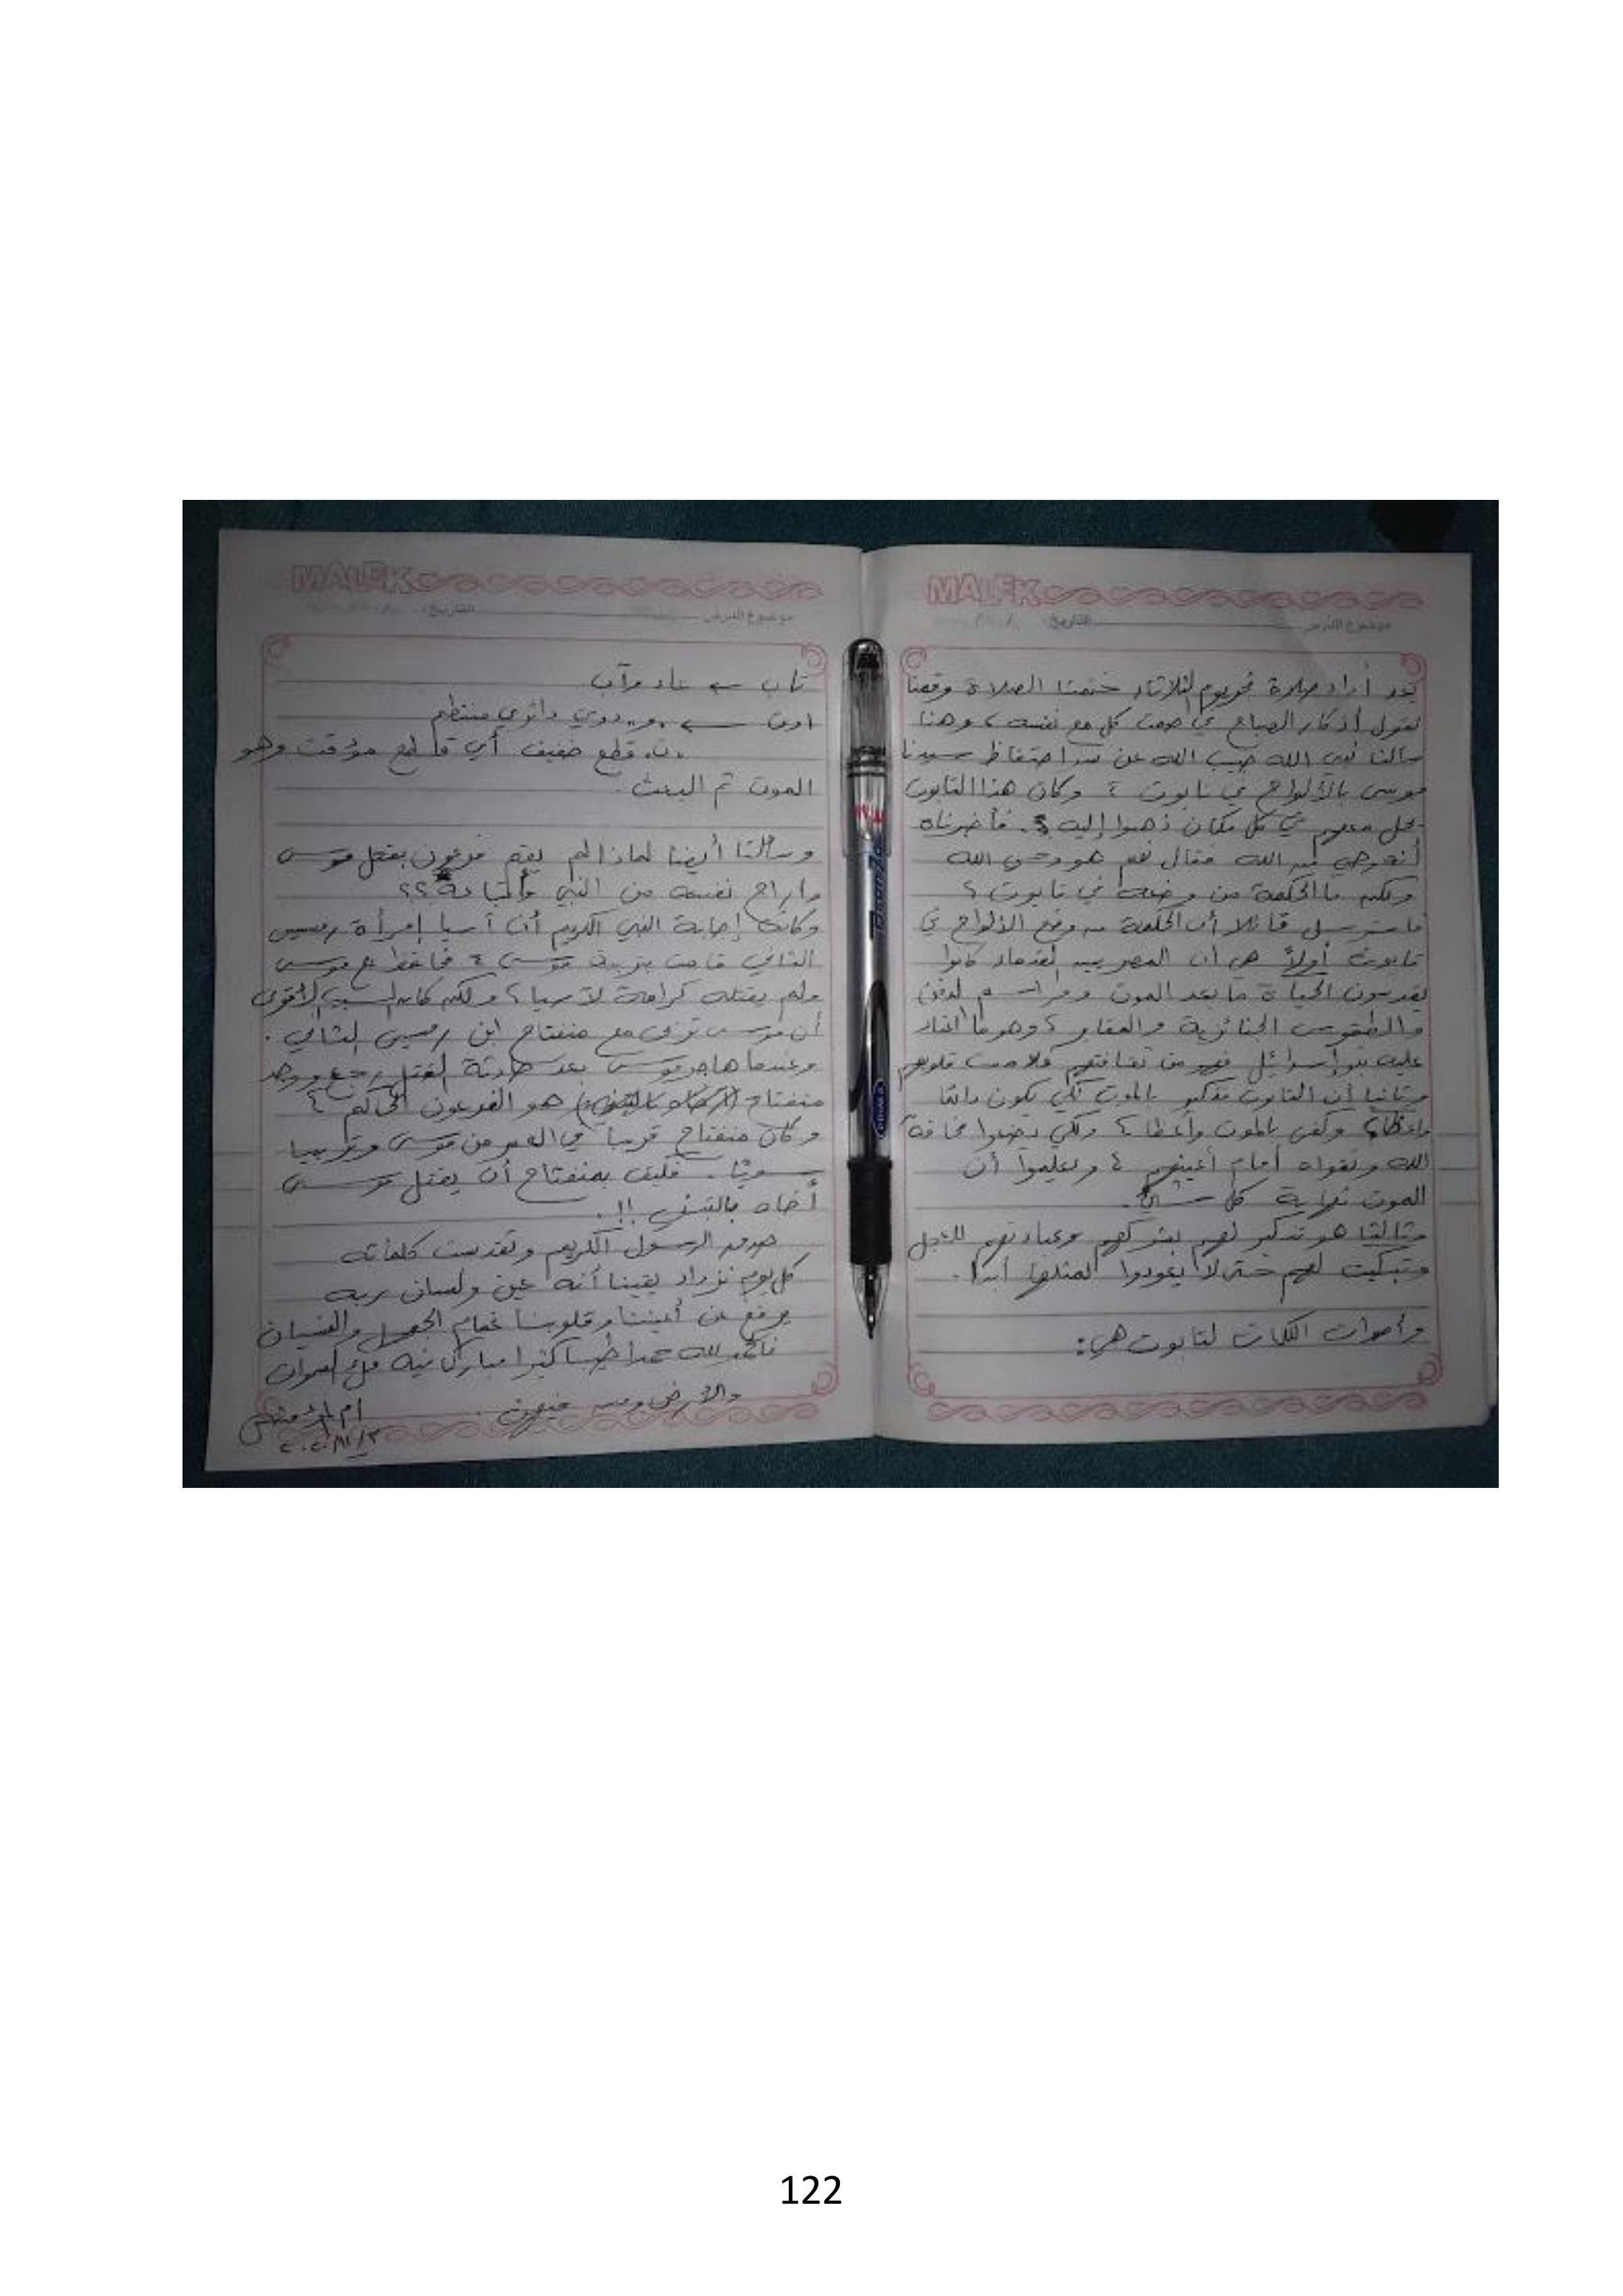 MALEK
موضوع الدرس التاريخ:
بعد أداء صلاة فجر يوم الثلاثاء ختمنا الصلاة وقمنا
نقول أذكار الصباح في صمت كل مع نفسه، وهنا
سألنا نبي الله حبيب الله عن سر احتفاظ سيدنا
موسى بالألواح في تابوت، وكان هذا التابوت
يحمل معهم في كل مكان ذهبوا إليه. فأخبرناه
أنه وحي من الله فقال نعم هو وحي الله
ولكن ما الحكمة من وضعه في تابوت؟
فاسترسل قائلا أن الحكمة من وضع الألواح في
تابوت أولاً هي أن المصريين القدماء كانوا
يقدسون الحياة ما بعد الموت ومراسم الدفن
والطقوس الجنائزية والمقابر، وهو ما اعتاد
عليه بنو إسرائيل فهو من ثقافتهم فلامست قلوبهم
وثانيا أن التابوت تذكير بالموت لكي يكون دائما
واعظا، وكفى بالموت واعظا، ولكي يضعوا مخافة
الله وتقواه أمام أعينهم، وليعلموا أن
الموت نهاية كل شيء.
وثالثا هو تذكير لهم بشركهم وعبادتهم للعجل
وتبكيت لهم حتى لا يعودوا لمثلها أبدا.
وأصوات الكلمات لتابوت هي:
MALEK
موضوع الدرس التاريخ:
تاب ← عاد وآب
اوت ← و.. دوي دائري منتظم
ت. قطع خفيف أي قاطع مؤقت وهو
الموت ثم البعث.
وسألنا أيضا لماذا لم يقم فرعون بقتل موسى
وأراح نفسه من النبي وأتباعه؟؟
وكانت إجابة النبي الكريم أن آسيا إمرأة رمسيس
الثاني قامت بتربية موسى، فحافظ ع موسى
ولم يقتله كرامة لآسيا، ولكن كان السبب الأقوى
أن موسى تربى مع منفتاح ابن رمسيس الثاني.
وعندما هاجر موسى بعد حادثة القتل رجع ووجد
منفتاح (أخاه بالتبني) هو الفرعون الحاكم،
وكان منفتاح قريباً في العمر من موسى وتربيا
سويًا. فكيف بمنفتاح أن يقتل موسى
أخاه بالتبني!!.
صدق الرسول الكريم وتقدست كلماته
كل يوم نزداد يقينا أنه عين ولسان ربه
يرفع عن أعيننا وقلوبنا غمام الجهل والنسيان
فالحمد لله حمدا طيبا كثيرا مبارك فيه ملء السموات
والأرض ومن فيهن.
122